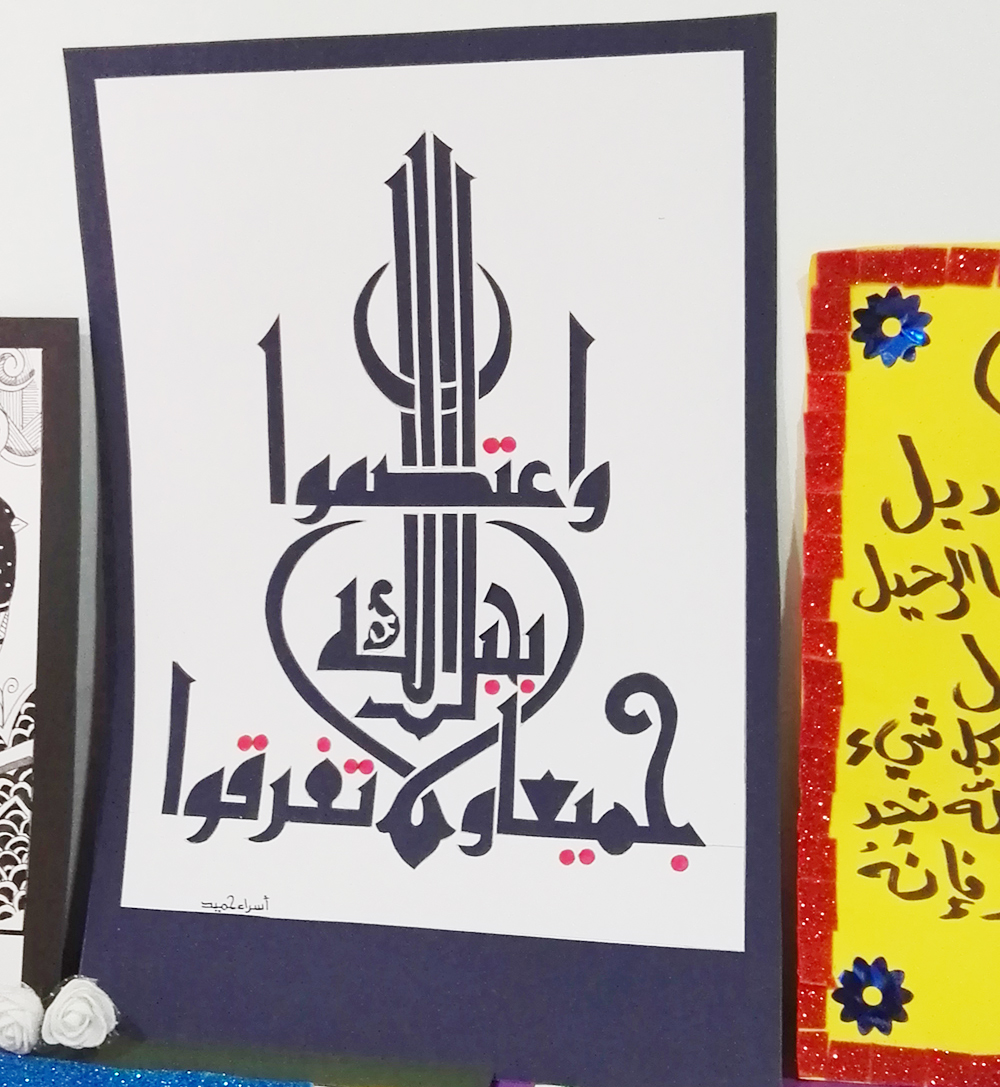 واعتصموا
بحبل الله
جميعا ولا تفرقوا
أسراء حميد
ديل
الرحيل
شيء
تجد
فإنه